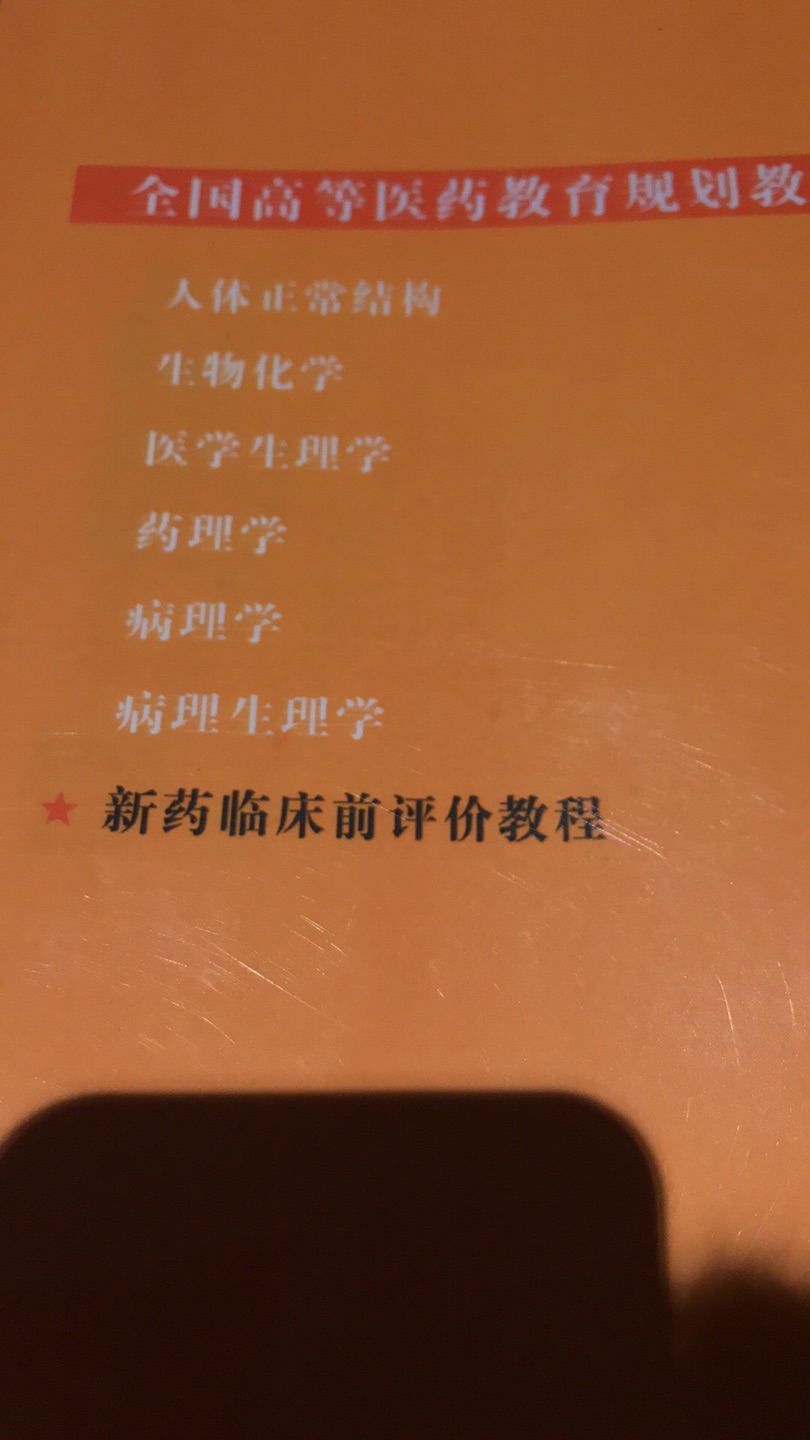 全国高等医药教育规划教
人体正常结构
生物化学
医学生理学
药理学
病理学
病理生理学
★ 新药临床前评价教程